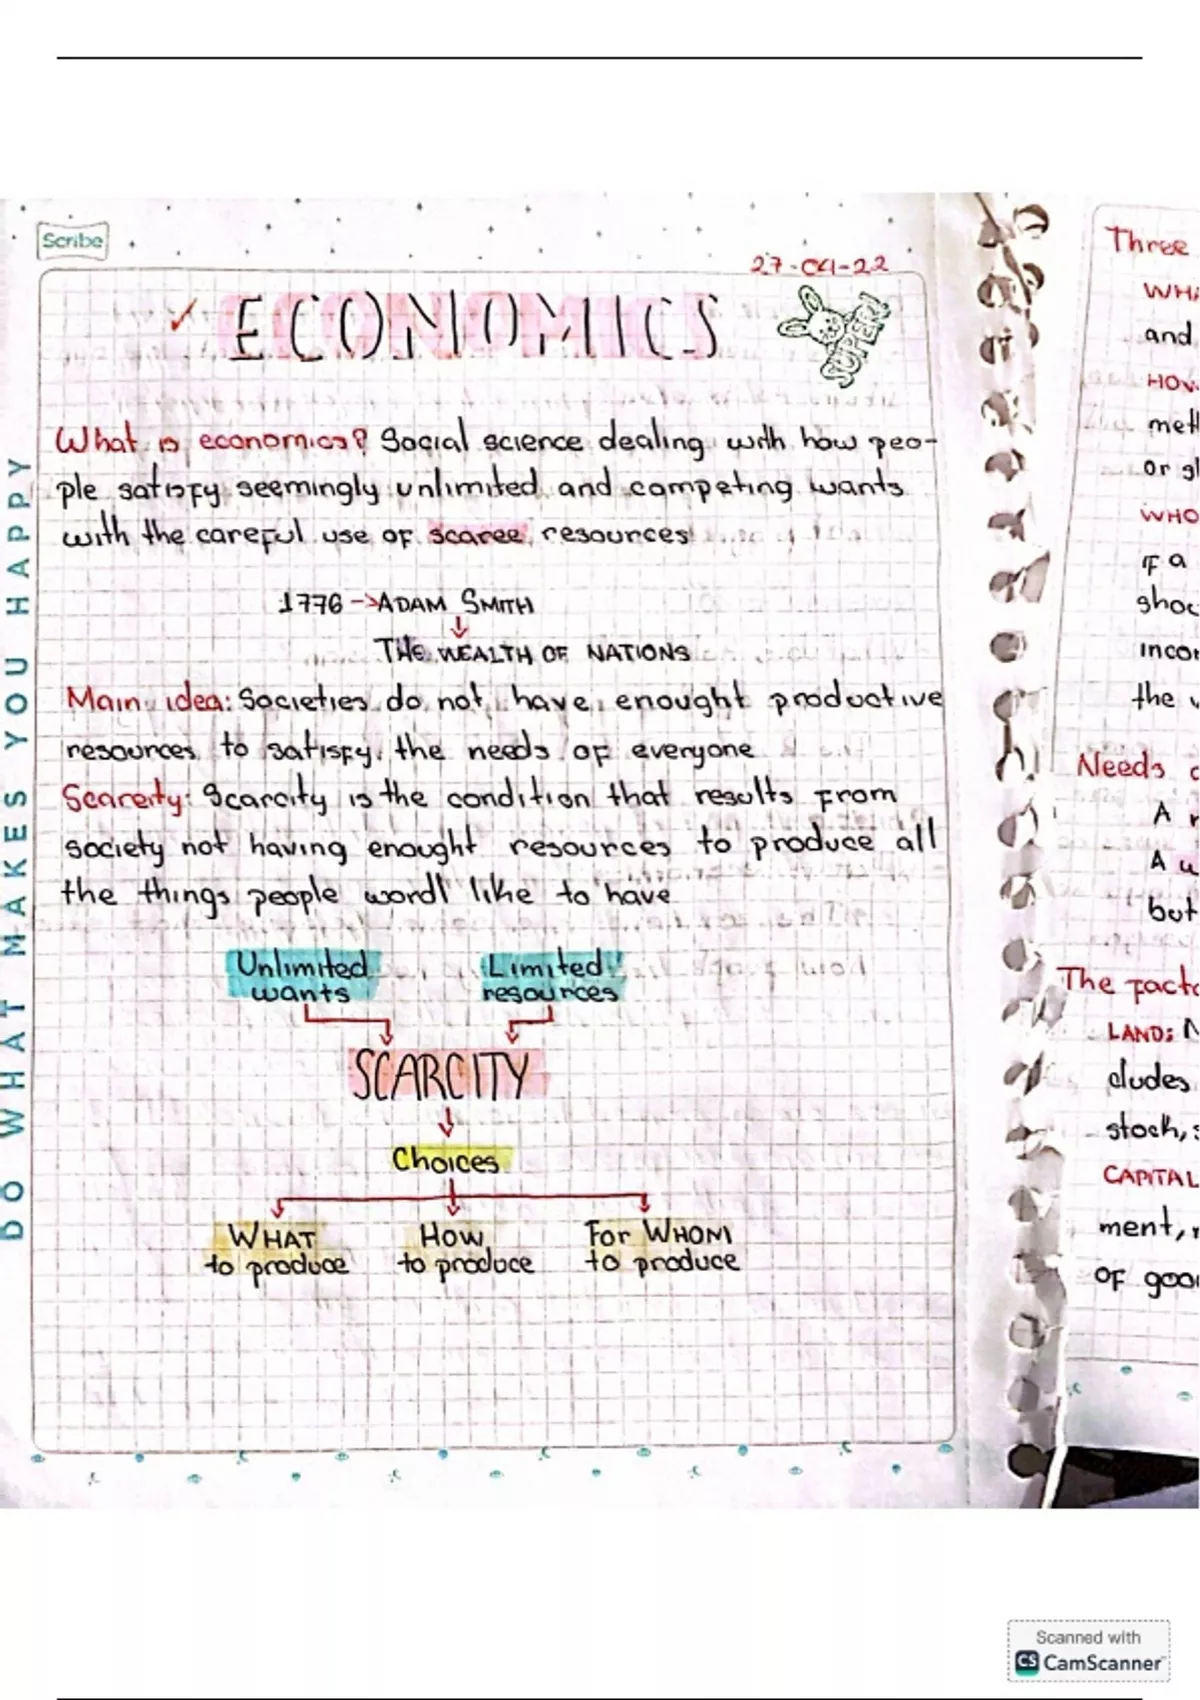 Scribe
27-04-22
ECONOMICS
SUPER!
What is economics? Social science dealing with how peo-
ple satisfy seemingly unlimited and competing wants
with the careful use of scarce resources
1776 → ADAM SMITH
↓
THE WEALTH OF NATIONS
Main idea: Societies do not have enought productive
resources to satisfy the needs of everyone
Scarcity: Scarcity is the condition that results from
society not having enought resources to produce all
the things people wordl like to have
Unlimited wants
Limited resources
SCARCITY
Choices
WHAT to produce
How to produce
For WHOM to produce
DO WHAT MAKES YOU HAPPY
Three
and
or
WHO
IF a
the
Needs
A
A
but
The
LAND:
cludes
stock,
CAPITAL
ment,
OF
Scanned with
CS CamScanner